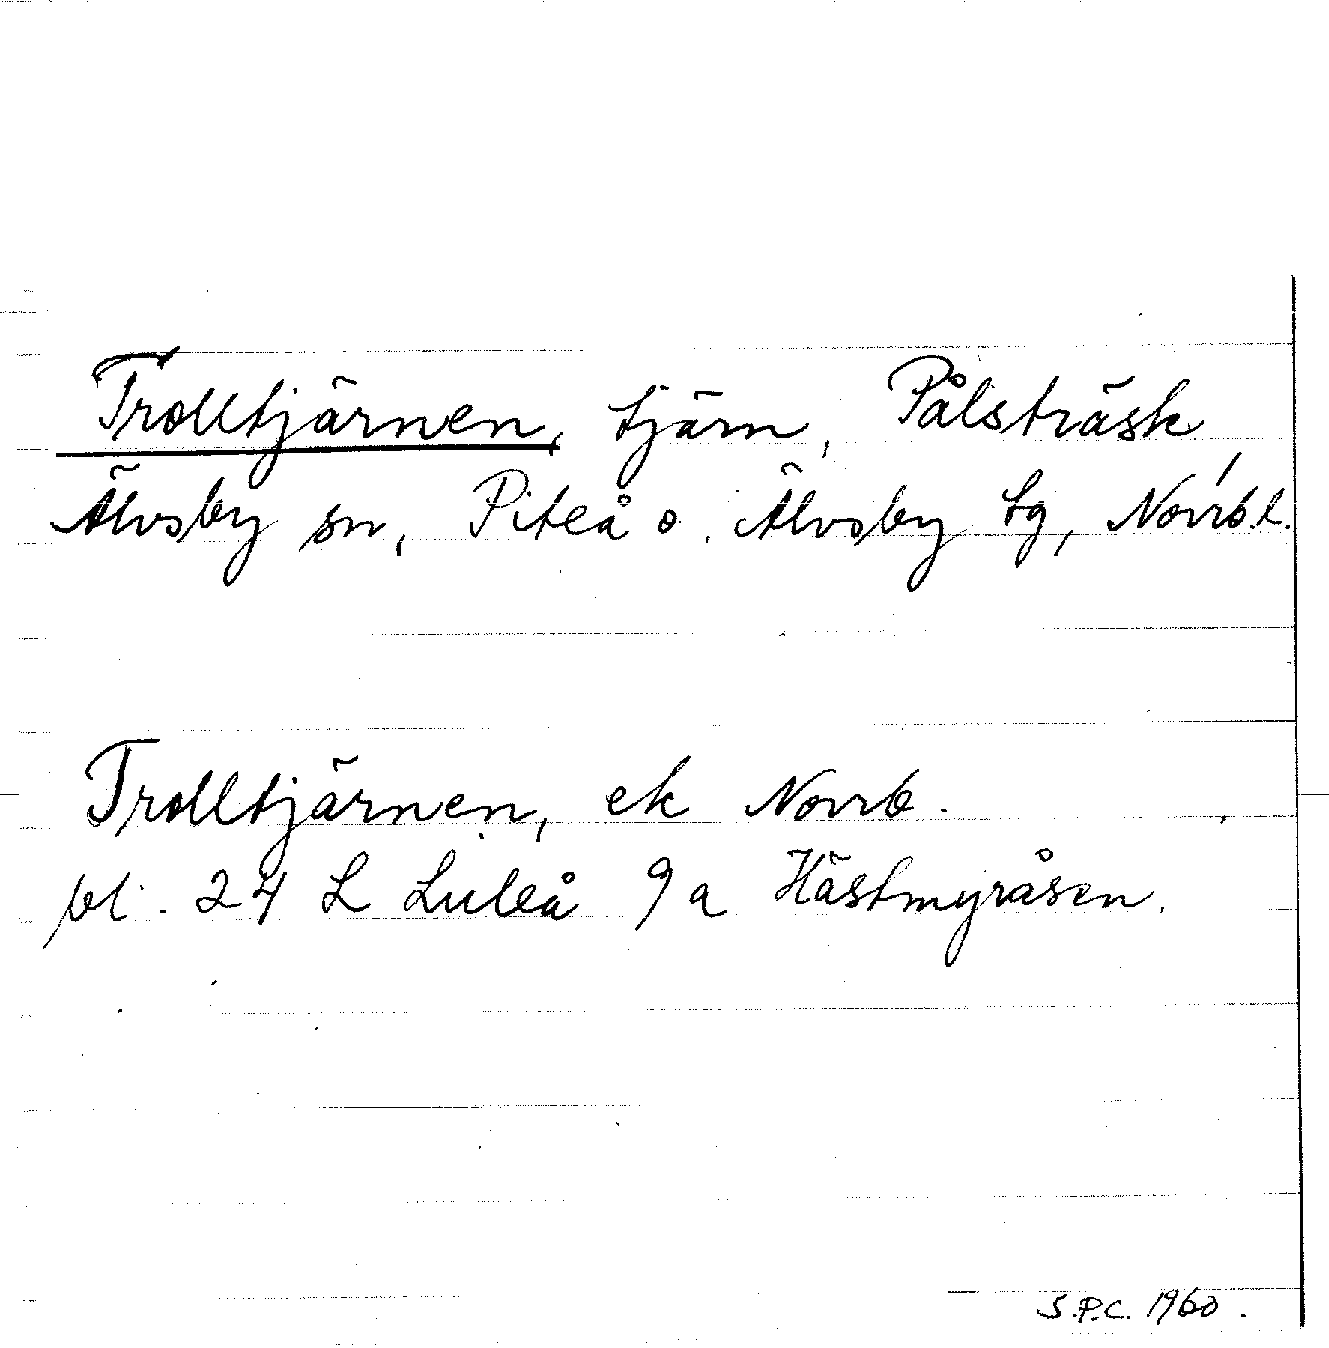 Trolltjärnen, tjärn, Pålsträsk
Älvsby sn, Piteå o. Älvsby tg, Norrb.l.
Trolltjärnen, ek Norrb.
bl. 24 L Luleå 9 a Hästmyråsen.
S.P.C. 1960.